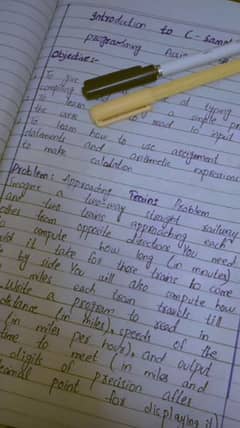 Introduction to C- 
programming
Objective:-
To at typing
compiling a simple
To learn to read in input
the user
To learn how to use assignment
statements and arithmetic expressions
to make calculation
Problem: Approaching Trains Problem
Imagine a two-way straight railway
and two trains approaching each
other from opposite directions You need
to compute how long (in minutes)
will it take for those trains to come
by side You will also compute how
miles each train travels till
Write a program to read in
distance (in miles), speeds of the
(in miles per hour), and output
time to meet (in miles and
digits of precision after
point for displaying it)